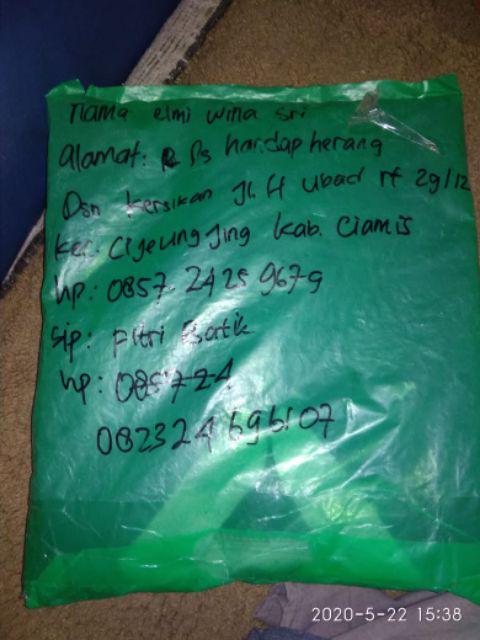 nama elmi wina sri
alamat: Ds handapherang
Dsn kersikan Jl. H ubad rt 29/12
Kec. Cijeungjing kab. Ciamis
hp: 0857 2425 9679
Sip: Pitri Batik
hp: 085724
082324696107
2020-5-22 15:38